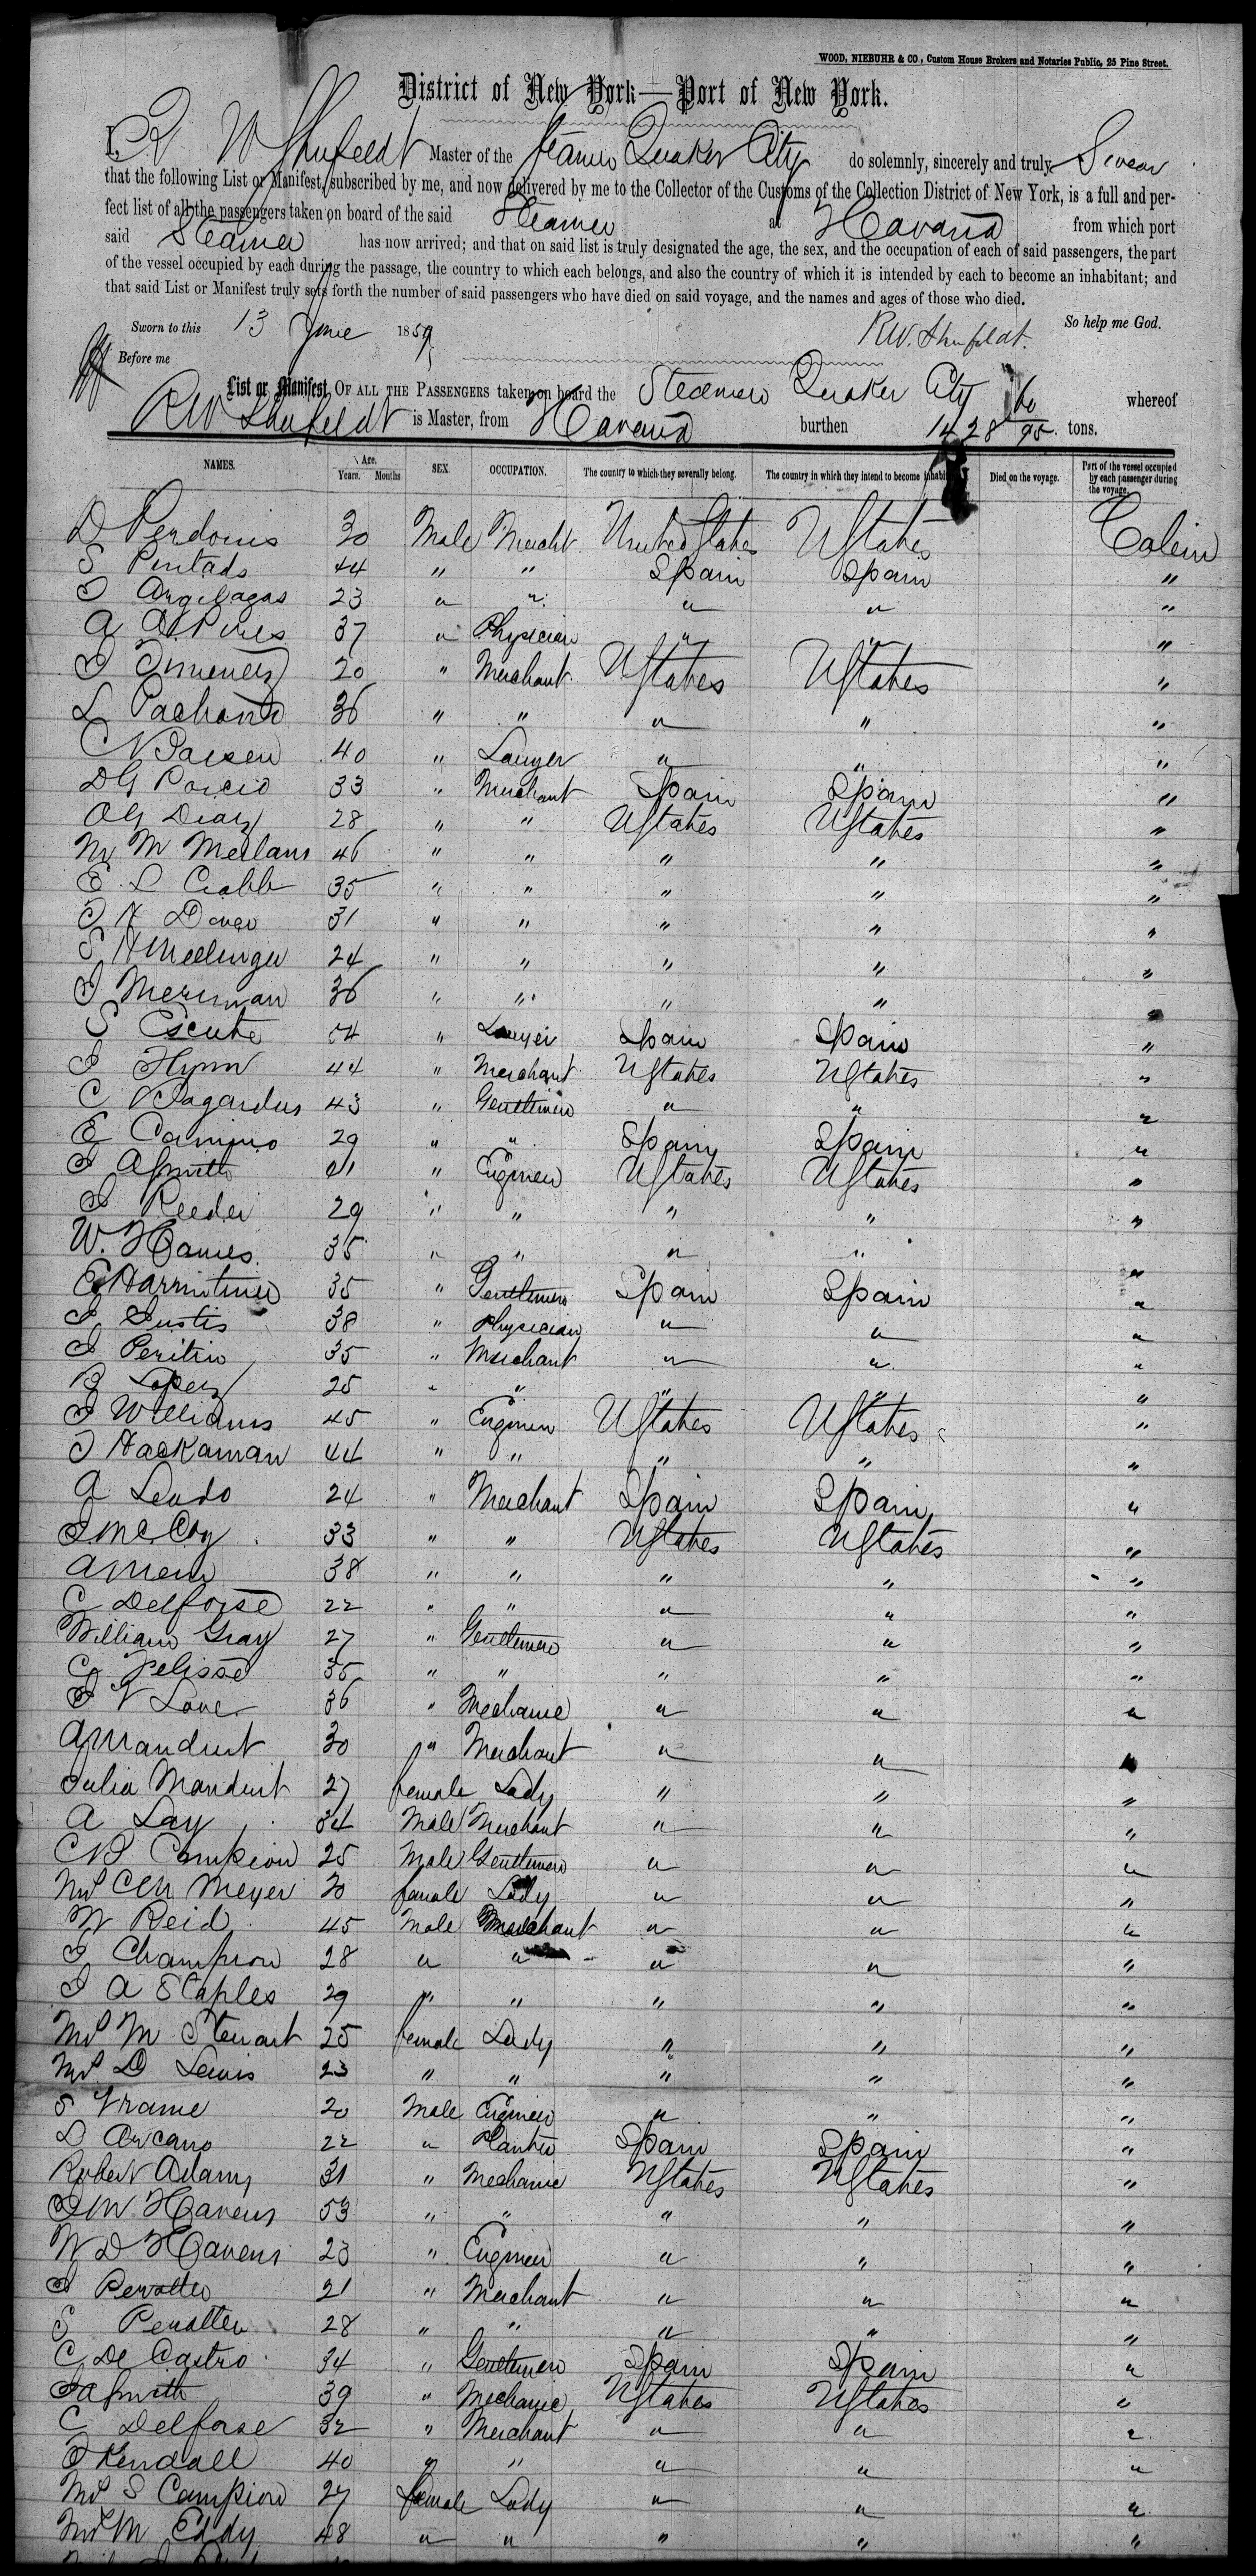 WOOD, NIEBUHR & CO., Custom House Brokers and Notaries Public, 25 Pine Street.
District of New York—Port of New York.
I, R W Shufeldt Master of the Steamer Quaker City do solemnly, sincerely and truly Swear
that the following List or Manifest, subscribed by me, and now delivered by me to the Collector of the Customs of the Collection District of New York, is a full and per-
fect list of all the passengers taken on board of the said Steamer at Havana from which port
said Steamer has now arrived; and that on said list is truly designated the age, the sex, and the occupation of each of said passengers, the part
of the vessel occupied by each during the passage, the country to which each belongs, and also the country of which it is intended by each to become an inhabitant; and
that said List or Manifest truly sets forth the number of said passengers who have died on said voyage, and the names and ages of those who died.
Sworn to this 13 June 1859 R.W. Shufeldt. So help me God.
Before me
List or Manifest OF ALL THE PASSENGERS taken on board the Steamer Quaker City whereof
RW Shufeldt is Master, from Havana burthen 1428 60/95 tons.
NAMES. Age. Years. Months SEX. OCCUPATION. The country to which they severally belong. The country in which they intend to become inhabitants. Died on the voyage. Part of the vessel occupied by each passenger during the voyage.
D Perdomis 30 Male Mercht. United States UStates Cabin
S Pintado 44 " " Spain Spain "
I Argilagas 23 " " " " "
A 37 " Physician " " "
I Jimenez 20 " Merchant UStates UStates "
L 36 " " " " "
C 40 " Lawyer " " "
DG 33 " Merchant Spain Spain "
AG Diaz 28 " " UStates UStates "
M 46 " " " " "
E L Crabb 35 " " " " "
31 " " " " "
S H Mellinger 24 " " " " "
I Merriman 36 " " " " "
S Escute 54 " Lawyer Spain Spain "
I Flynn 44 " Merchant UStates UStates "
C Bogardus 43 " Gentlemen " " "
E Camino 29 " " Spain Spain "
I A Smith 41 " Engineer UStates UStates "
I Reeder 29 " " " " "
W. Hames 35 " " " " "
E 35 " Gentlemen Spain Spain "
I Sustis 38 " Physician " " "
I Peritin 35 " Merchant " " "
B Lopez 25 " " " " "
I Williams 45 " Engineer UStates UStates "
I Hackaman 44 " " " " "
A Lendo 24 " Merchant Spain Spain "
I McCoy 33 " " UStates UStates "
A 38 " " " " "
C Delforse 22 " " " " "
William Gray 27 " Gentlemen " " "
C Pelisse 35 " " " " "
I V Love 36 " Mechanic " " "
A Manduit 30 " Merchant " " "
Julia Manduit 27 female Lady " " "
A Lay 34 Male Merchant " " "
C B Campion 25 Male Gentlemen " " "
Mrs C M Meyer 30 female Lady " " "
W Reid 45 Male Merchant " " "
I Champion 28 " " " " "
I A Staples 29 " " " " "
Mrs M Stewart 25 female Lady " " "
Mrs D Lewis 23 " " " " "
S Vrame 20 Male Engineer " " "
D Arcano 22 " Planter Spain Spain "
Robert Adams 31 " Mechanic UStates UStates "
I W Havens 53 " " " " "
W D Havens 23 " Engineer " " "
I Peralter 21 " Merchant " " "
S Peralter 28 " " " " "
C De Castro 34 " Gentlemen Spain Spain "
I A Smith 39 " Mechanic UStates UStates "
C Delforse 32 " Merchant " " "
Kendall 40 " " " " "
Mrs S Campion 27 female Lady " " "
Mrs M Eddy 48 " " " " "